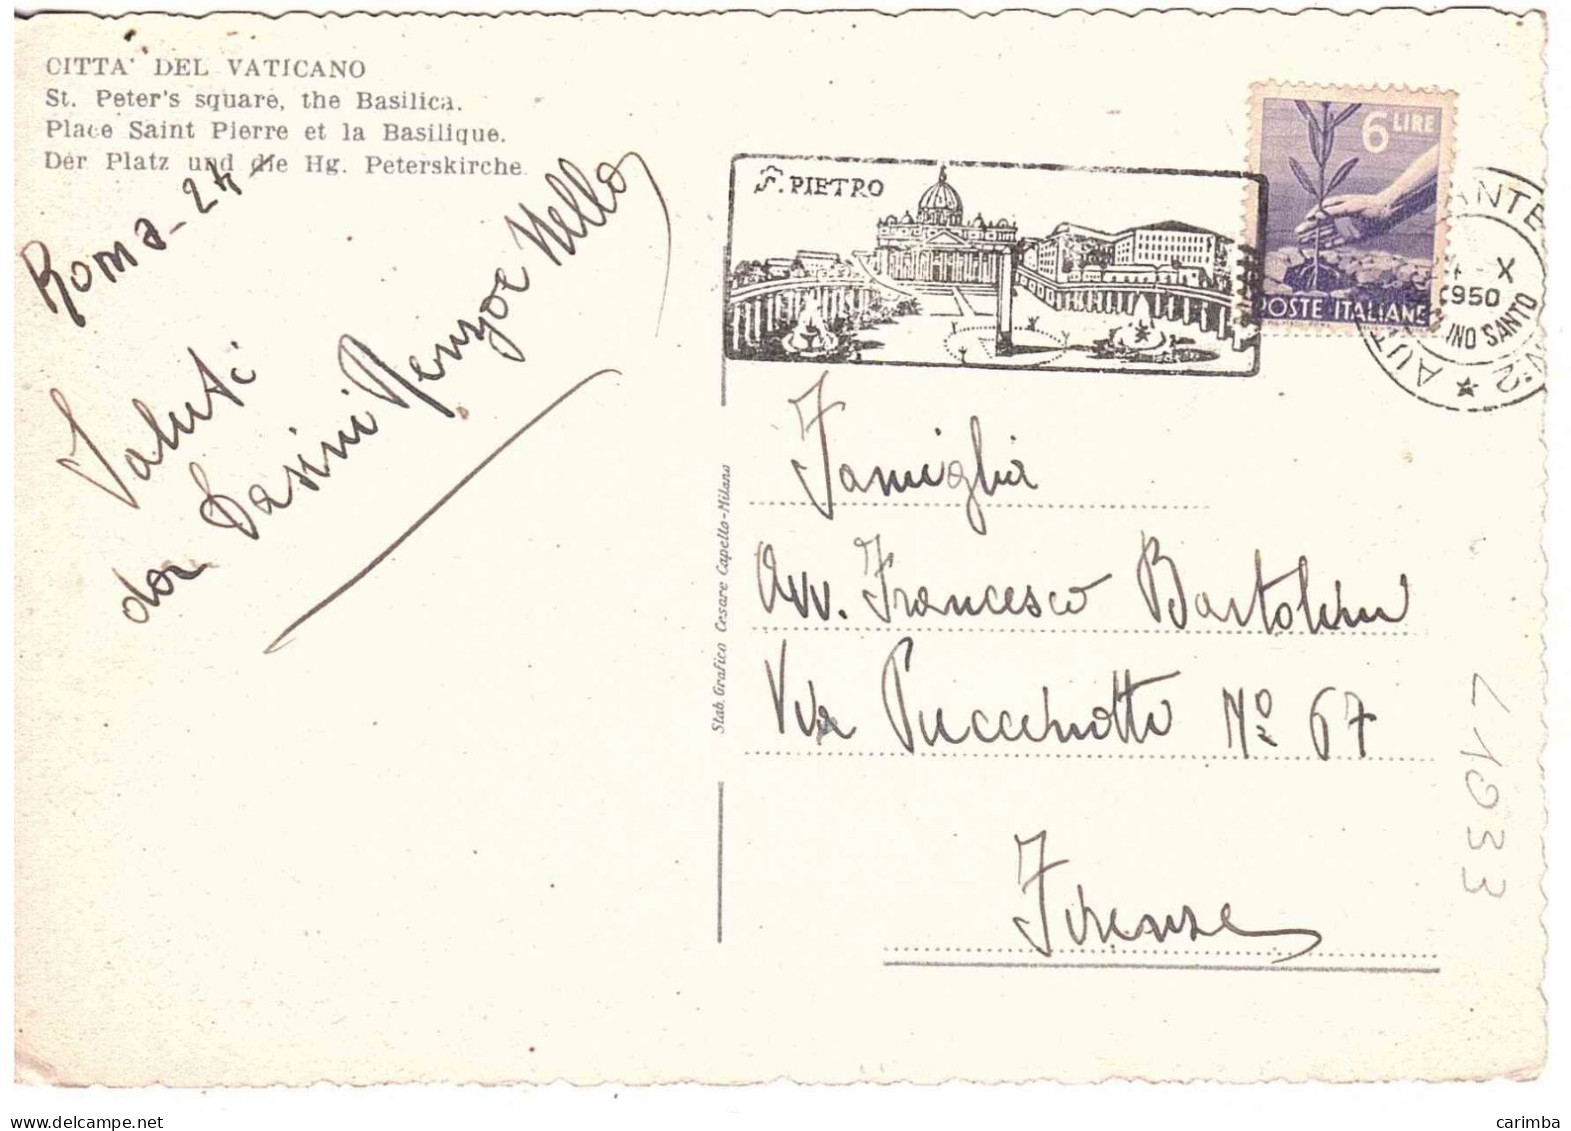 CITTA' DEL VATICANO
St. Peter's square, the Basilica.
Place Saint Pierre et la Basilique.
Der Platz und die Hg. Peterskirche.
Roma - 24
Saluti
da Renzo e Nello
S. PIETRO
6 LIRE
POSTE ITALIANE
X
1950
INO SANTO
N. 2
Famiglia
Avv. Francesco Bartolini
Via Pucchiotti Nº 67
Firenze
Stab. Grafico Cesare Capello-Milano
L1033
carimba